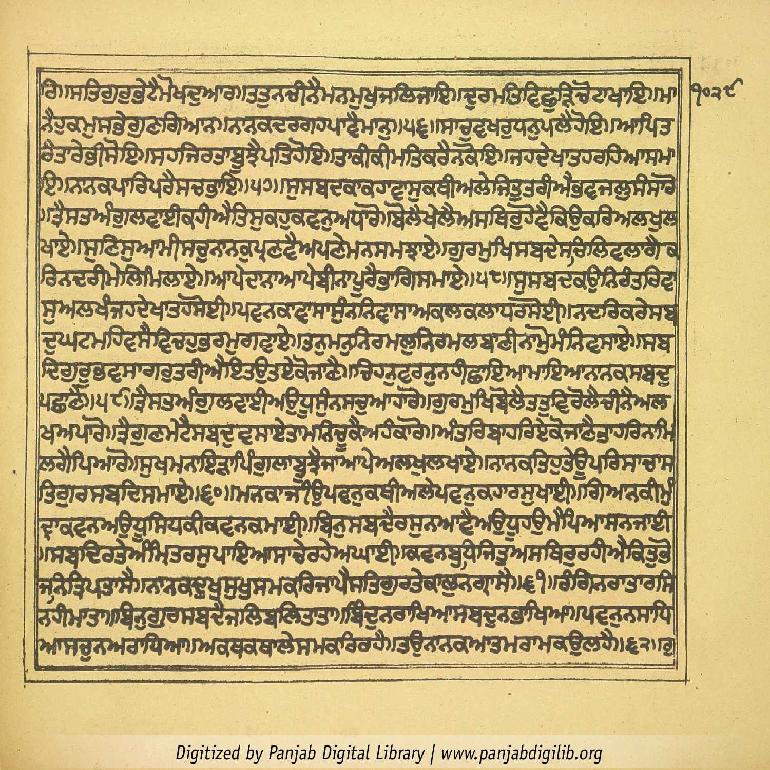 ਰਿ॥ਸਤਿਗੁਰੁਭੇਟੈਮੋਖਦੁਆਰ॥ਤਤੁਨਚੀਨੈਮਨਮੁਖੁਜਲਿਜਾਇ॥ਦੁਰਮਤਿਵਿਛੁੜਿਚੋਟਾਖਾਇ॥ਮਾ ੧੦੨੯
ਨੈਹੁਕਮੁਸਭੇਗੁਣਗਿਆਨ॥ਨਾਨਕਦਰਗਹਪਾਵੈਮਾਨੁ॥੫੬॥ਸਾਚੁਵਖਰੁਧਨੁਪਲੈਹੋਇ॥ਆਪਿਤ
ਰੈਤਾਰੇਭੀਸੋਇ॥ਸਹਜਿਰਤਾਬੂਝੈਪਤਿਹੋਇ॥ਤਾਕੀਕੀਮਤਿਕਰੈਨਕੋਇ॥ਜਹਦੇਖਾਤਹਰਹਿਆਸਮਾ
ਇ॥ਨਾਨਕਪਾਰਿਪਰੈਸਚਭਾਇ॥੫੭॥ਸੁਸਬਦਕਾਕਹਾਵਾਸੁਕਥੀਅਲੇਜਿਤੁਤਰੀਐਭਵਜਲੁਸੰਸਾਰੋ
॥ਤ੍ਰੈਸਤਅੰਗੁਲਵਾਈਕਹੀਐਤਿਸੁਕਹੁਕਵਨੁਅਧਾਰੋ॥ਬੋਲੈਖੇਲੈਅਸਥਿਰੁਹੋਵੈਕਿਉਕਰਿਅਲਖੁਲ
ਖਾਏ॥ਸੁਣਿਸੁਆਮੀਸਚੁਨਾਨਕੁਪ੍ਰਣਵੈਅਪਣੇਮਨਸਮਝਾਏ॥ਗੁਰਮੁਖਿਸਬਦੇਸਚਿਲਿਵਲਾਗੈਕ
ਰਿਨਦਰੀਮੇਲਿਮਿਲਾਏ॥ਆਪੇਦਾਨਾਆਪੇਬੀਨਾਪੂਰੈਭਾਗਿਸਮਾਏ॥੫੮॥ਸੁਸਬਦਕਉਨਿਰੰਤਰਿਵਾ
ਸੁਅਲਖੰਜਹਦੇਖਾਤਹਸੋਈ॥ਪਵਨਕਾਵਾਸਾਸੁੰਨਨਿਵਾਸਾਅਕਲਕਲਾਧਰਸੋਈ॥ਨਦਰਿਕਰੇਸਬ
ਦੁਘਟਮਹਿਵਸੈਵਿਚਹੁਭਰਮੁਗਵਾਏ॥ਤਨੁਮਨੁਨਿਰਮਲੁਨਿਰਮਲਬਾਣੀਨਾਮੋੁਮੰਨਿਵਸਾਏ॥ਸਬ
ਦਿਗੁਰੂਭਵਸਾਗਰੁਤਰੀਐਇਤਉਤਏਕੋਜਾਣੈ॥ਚਿਹਨੁਵਰਨੁਨਹੀਛਾਇਆਮਾਇਆਨਾਨਕਸਬਦੁ
ਪਛਾਣੈ॥੫੯॥ਤ੍ਰੈਸਤਅੰਗੁਲਵਾਈਅਉਧੂਸੁੰਨਸਚੁਆਹਾਰੋ॥ਗੁਰਮੁਖਿਬੋਲੈਤਤੁਵਿਰੋਲੈਚੀਨੈਅਲ
ਖਅਪਾਰੋ॥ਤ੍ਰੈਗੁਣਮੇਟੈਸਬਦੁਵਸਾਏਤਾਮਨਿਚੂਕੈਅਹੰਕਾਰੋ॥ਅੰਤਰਿਬਾਹਰਿਏਕੋਜਾਣੈਤਾਹਰਿਨਾਮਿ
ਲਗੈਪਿਆਰੋ॥ਸੁਖਮਨਾਇੜਾਪਿੰਗੁਲਾਬੂਝੈਜਾਆਪੇਅਲਖੁਲਖਾਏ॥ਨਾਨਕਤਿਹੁਤੇਊਪਰਿਸਾਚਾਸ
ਤਿਗੁਰਸਬਦਿਸਮਾਏ॥੬੦॥ਮਨਕਾਜੀਉਪਵਨੁਕਥੀਅਲੇਪਵਨੁਕਹਾਰਸੁਖਾਈ॥ਗਿਆਨਕੀਮੁੰ
ਦ੍ਰਾਕਵਨਅਉਧੂਸਿਧਕੀਕਵਨਕਮਾਈ॥ਬਿਨੁਸਬਦੈਰਸੁਨਆਵੈਅਉਧੂਹਉਮੈਪਿਆਸਨਜਾਈ
॥ਸਬਦਿਰਤੇਅੰਮ੍ਰਿਤਰਸੁਪਾਇਆਸਾਚੇਰਹੇਅਘਾਈ॥ਕਵਨਬੁਧਿਜਿਤੁਅਸਥਿਰੁਰਹੀਐਕਿਤੁਭੋ
ਜਨਿਤ੍ਰਿਪਤਾਸੈ॥ਨਾਨਕਦੁਖੁਸੁਖੁਸਮਕਰਿਜਾਪੈਸਤਿਗੁਰਤੇਕਾਲੁਨਗ੍ਰਾਸੈ॥੬੧॥ਰੰਗਿਨਰਾਤਾਰਸਿ
ਨਹੀਮਾਤਾ॥ਬਿਨੁਗੁਰਸਬਦੈਜਲਿਬਲਿਤਾਤਾ॥ਬਿੰਦੁਨਰਾਖਿਆਸਬਦੁਨਭਾਖਿਆ॥ਪਵਨੁਨਸਾਧਿ
ਆਸਚੁਨਅਰਾਧਿਆ॥ਅਕਥਕਥਾਲੇਸਮਕਰਿਰਹੈ॥ਤਉਨਾਨਕਆਤਮਰਾਮਕਉਲਹੈ॥੬੨॥ਗੁ
Digitized by Panjab Digital Library | www.panjabdigilib.org